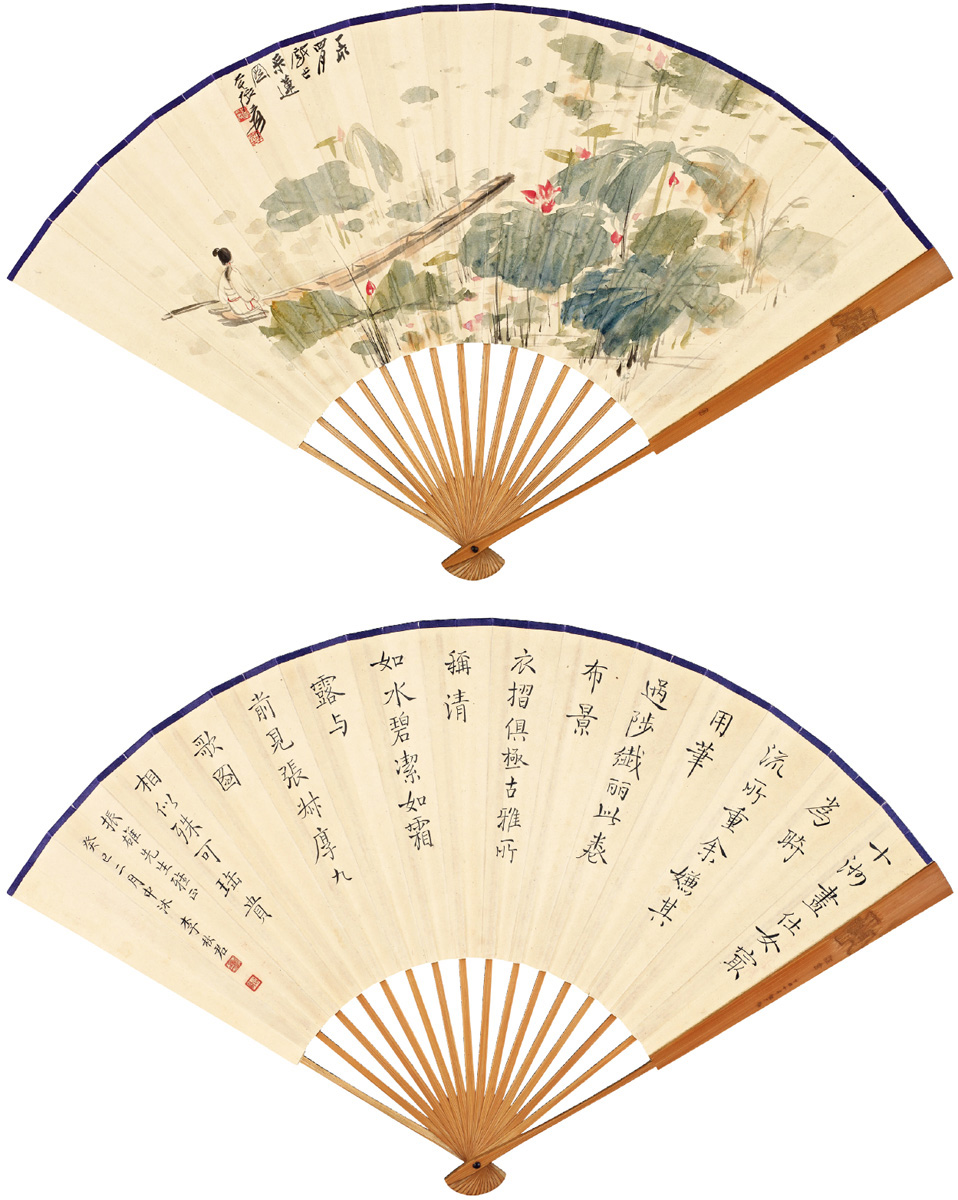 四月
采蓮
圖
爰
十洲畫仕女㝡
為時
流所重余嫌其
用筆
過涉纖丽此卷
布景
衣摺俱極古雅所
稱清
如水碧潔如霜
露与
前見張叔厚九
歌圖
相似殊可珎貴
振雄先生正
癸巳二月中沐 李秋君